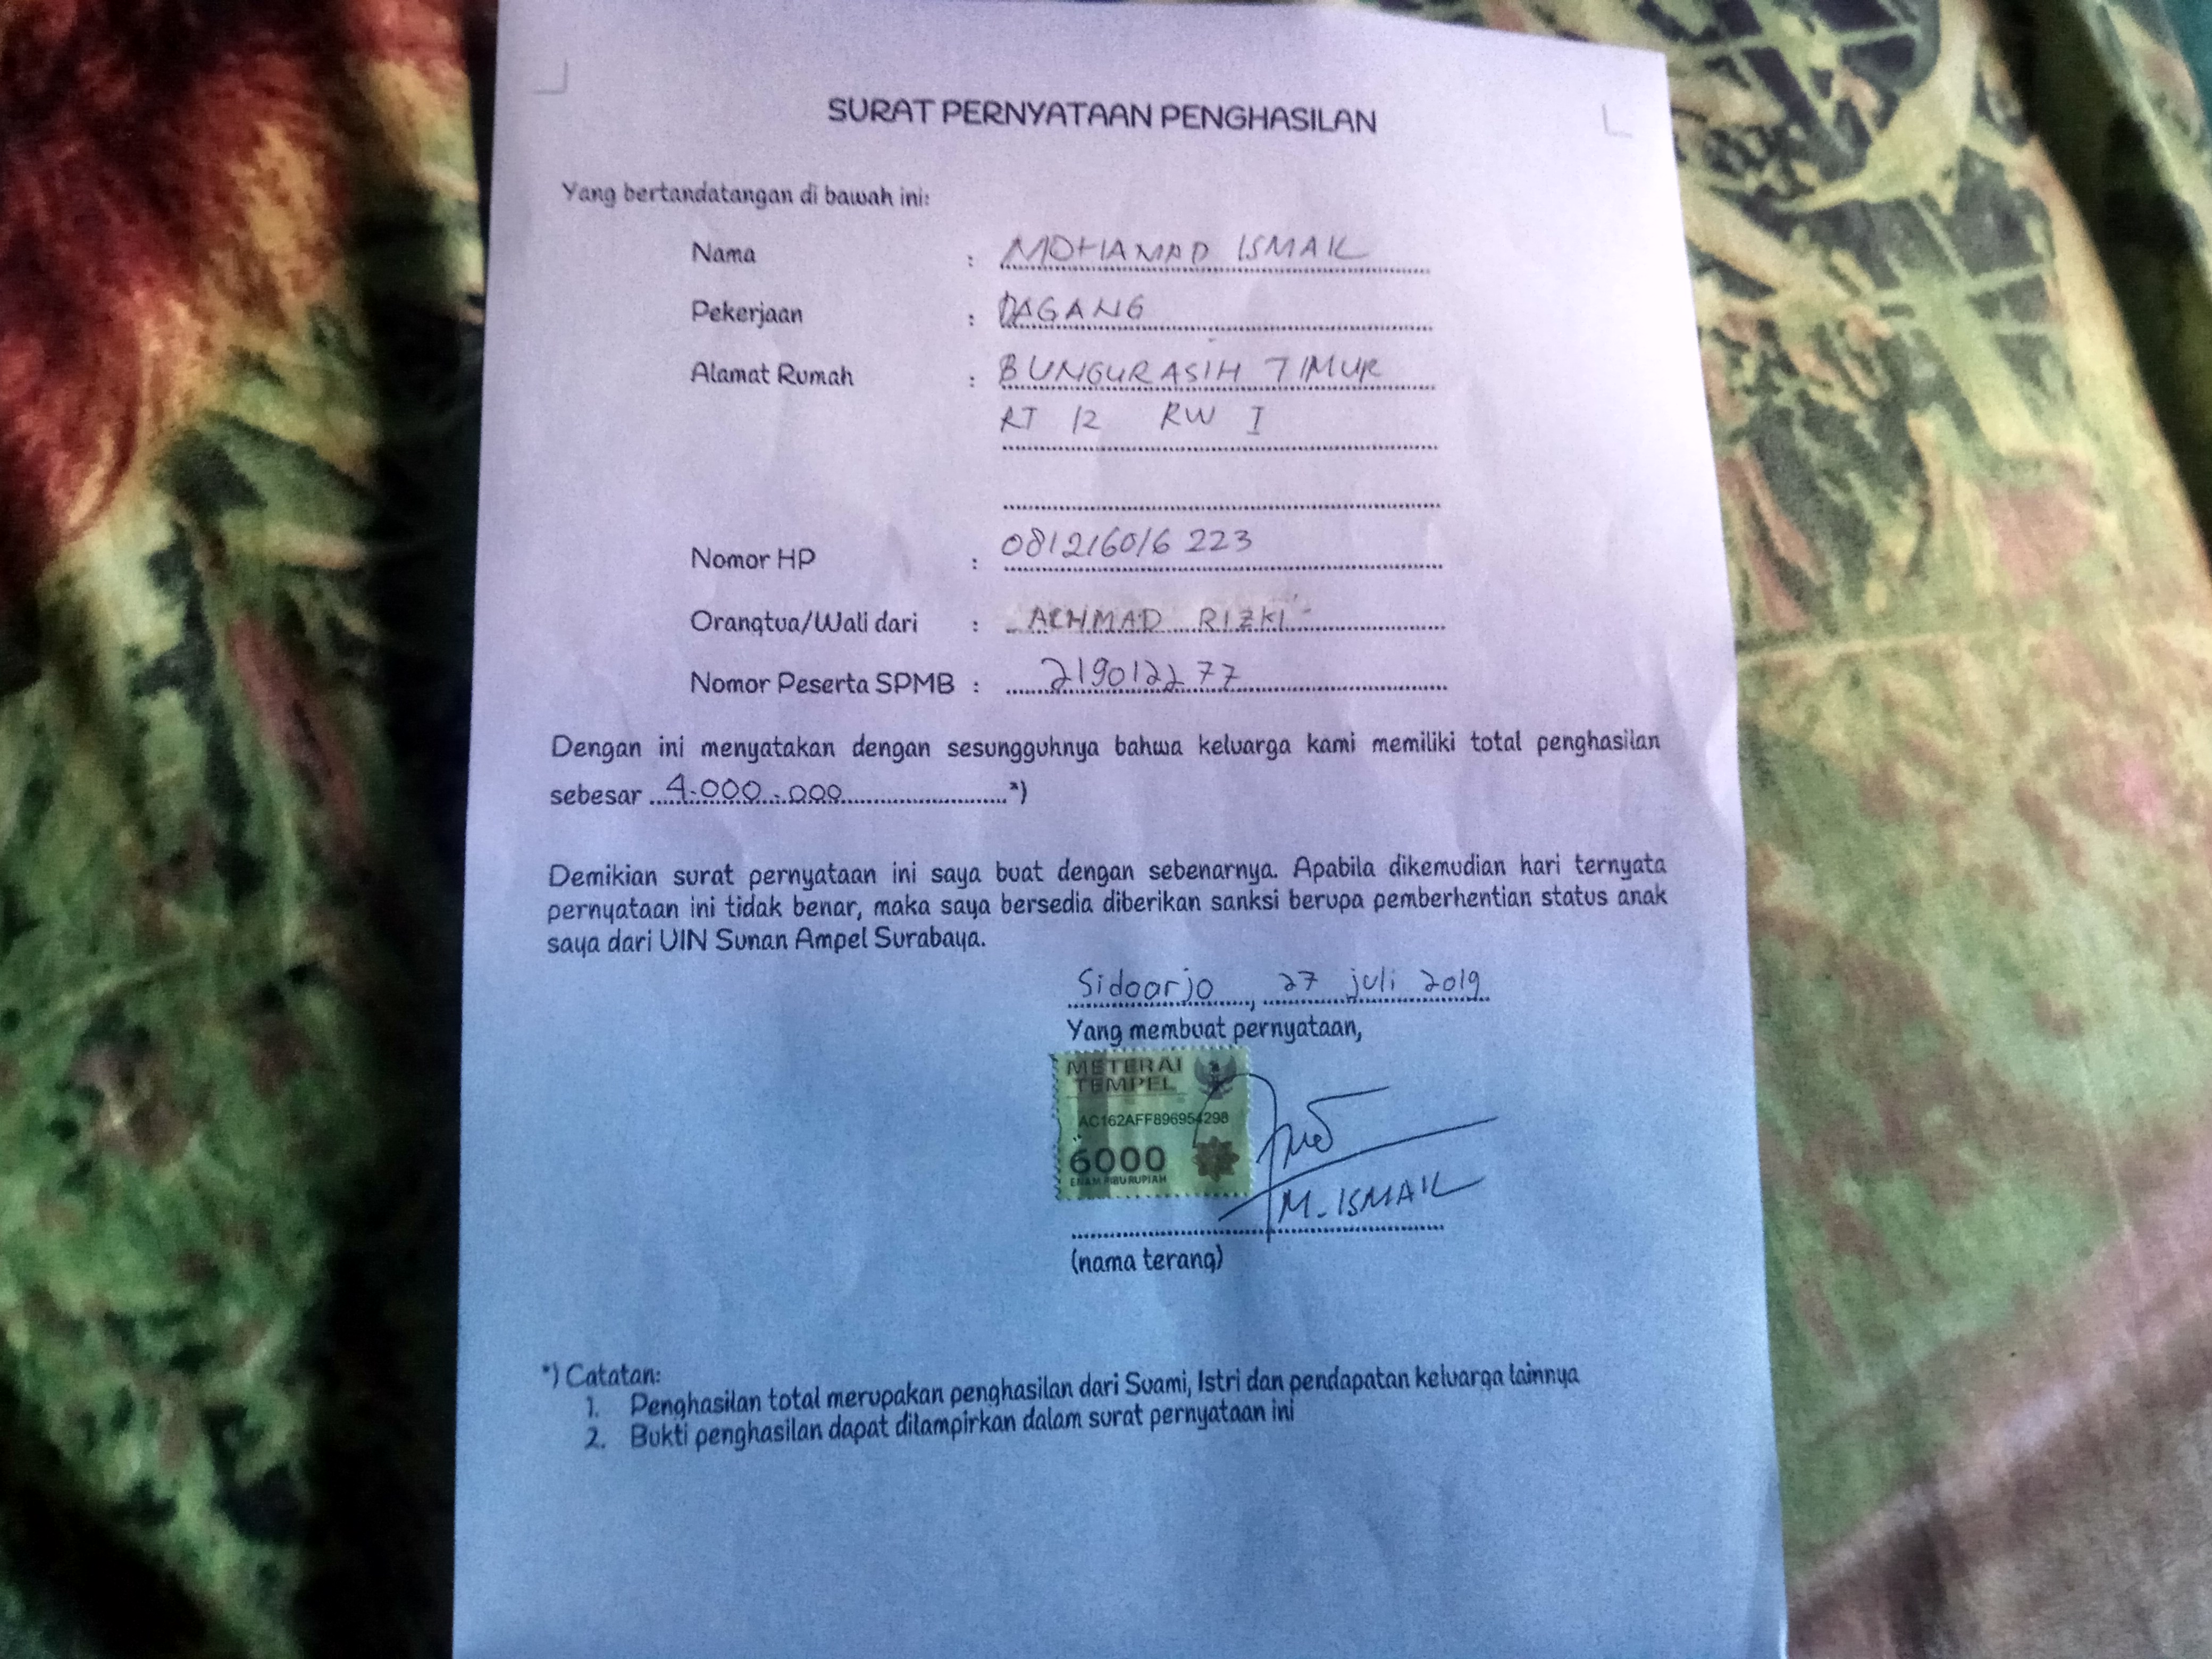 SURAT PERNYATAAN PENGHASILAN
Yang bertandatangan di bawah ini:
Nama : MOHAMAD ISMAIL
Pekerjaan : DAGANG
Alamat Rumah : BUNGURASIH TIMUR
RT 12 RW I
Nomor HP : 081216016 223
Orangtua/Wali dari : ACHMAD RIZKI
Nomor Peserta SPMB : 219012277
Dengan ini menyatakan dengan sesungguhnya bahwa keluarga kami memiliki total penghasilan
sebesar 4.000.000 *)
Demikian surat pernyataan ini saya buat dengan sebenarnya. Apabila dikemudian hari ternyata
pernyataan ini tidak benar, maka saya bersedia diberikan sanksi berupa pemberhentian status anak
saya dari UIN Sunan Ampel Surabaya.
Sidoarjo, 27 juli 2019
Yang membuat pernyataan,
METERAI
TEMPEL
AC162AFF896954298
6000
ENAM RIBU RUPIAH
M. ISMAIL
(nama terang)
*) Catatan:
1. Penghasilan total merupakan penghasilan dari Suami, Istri dan pendapatan keluarga lainnya
2. Bukti penghasilan dapat dilampirkan dalam surat pernyataan ini